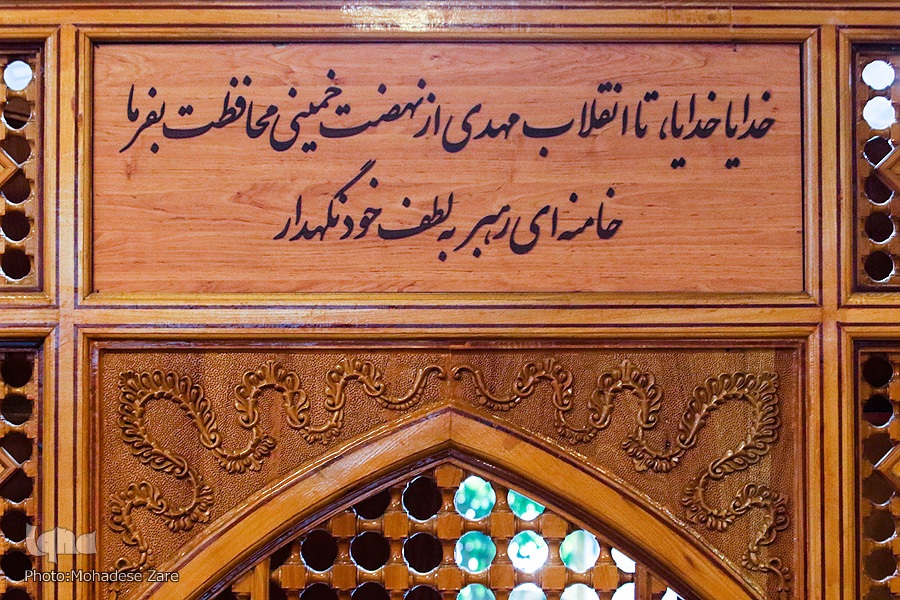 خدایا خدایا، تا انقلاب مهدی از نهضت خمینی محافظت بفرما
خامنه ای رهبر به لطف خود نگهدار
iqna
Photo:Mohadese Zare